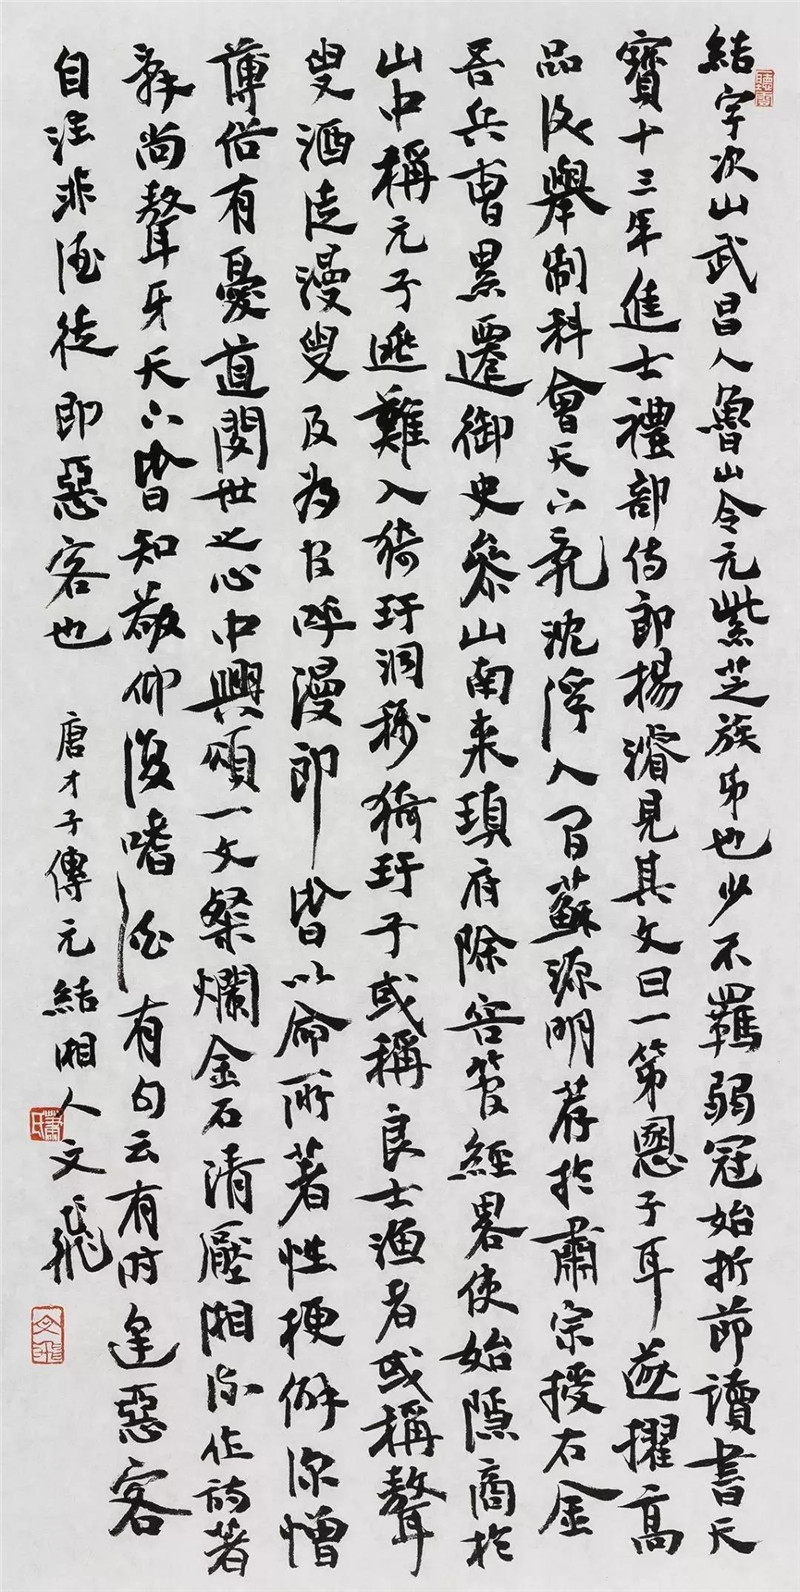 結字次山武昌人魯山令元紫芝族弟也少不羈弱冠始折節讀書天
寶十三年進士禮部侍郎楊濬見其文曰一第慁子耳遂擢高
品後舉制科會天下亂沈浮人間蘇源明荐於肅宗授右金
吾兵曹累遷御史參山南來瑱府除容管經畧使始隱商於
山中稱元子逃難入猗玗洞称猗玗子或稱良士漁者或稱聱
叟酒徒漫叟及為官呼漫郎皆以命所著性梗僻深憎
薄俗有憂道閔世之心中興頌一文粲爛金石清壓湘流作詩著
辞尚聱牙天下皆知敬仰復嗜酒有句云有时逢惡客
自注非酒徒即惡客也
唐才子傳元結湘人文飛